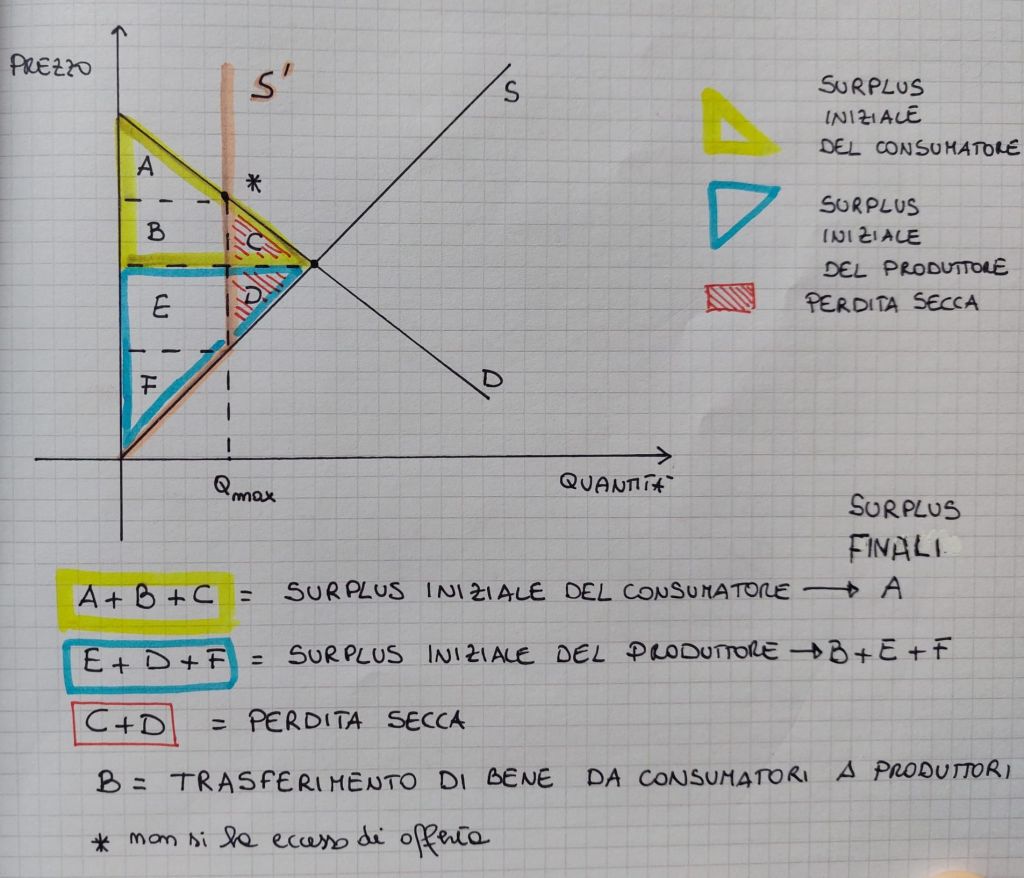 PREZZO
S'
S
A
*
B
C
E
D
F
D
Qmax
QUANTITA'
SURPLUS
INIZIALE
DEL CONSUMATORE
SURPLUS
INIZIALE
DEL PRODUTTORE
PERDITA SECCA
SURPLUS
FINALI
A+B+C = SURPLUS INIZIALE DEL CONSUMATORE → A
E+D+F = SURPLUS INIZIALE DEL PRODUTTORE → B+E+F
C+D = PERDITA SECCA
B = TRASFERIMENTO DI BENE DA CONSUMATORI A PRODUTTORI
* non si ha eccesso di offerta